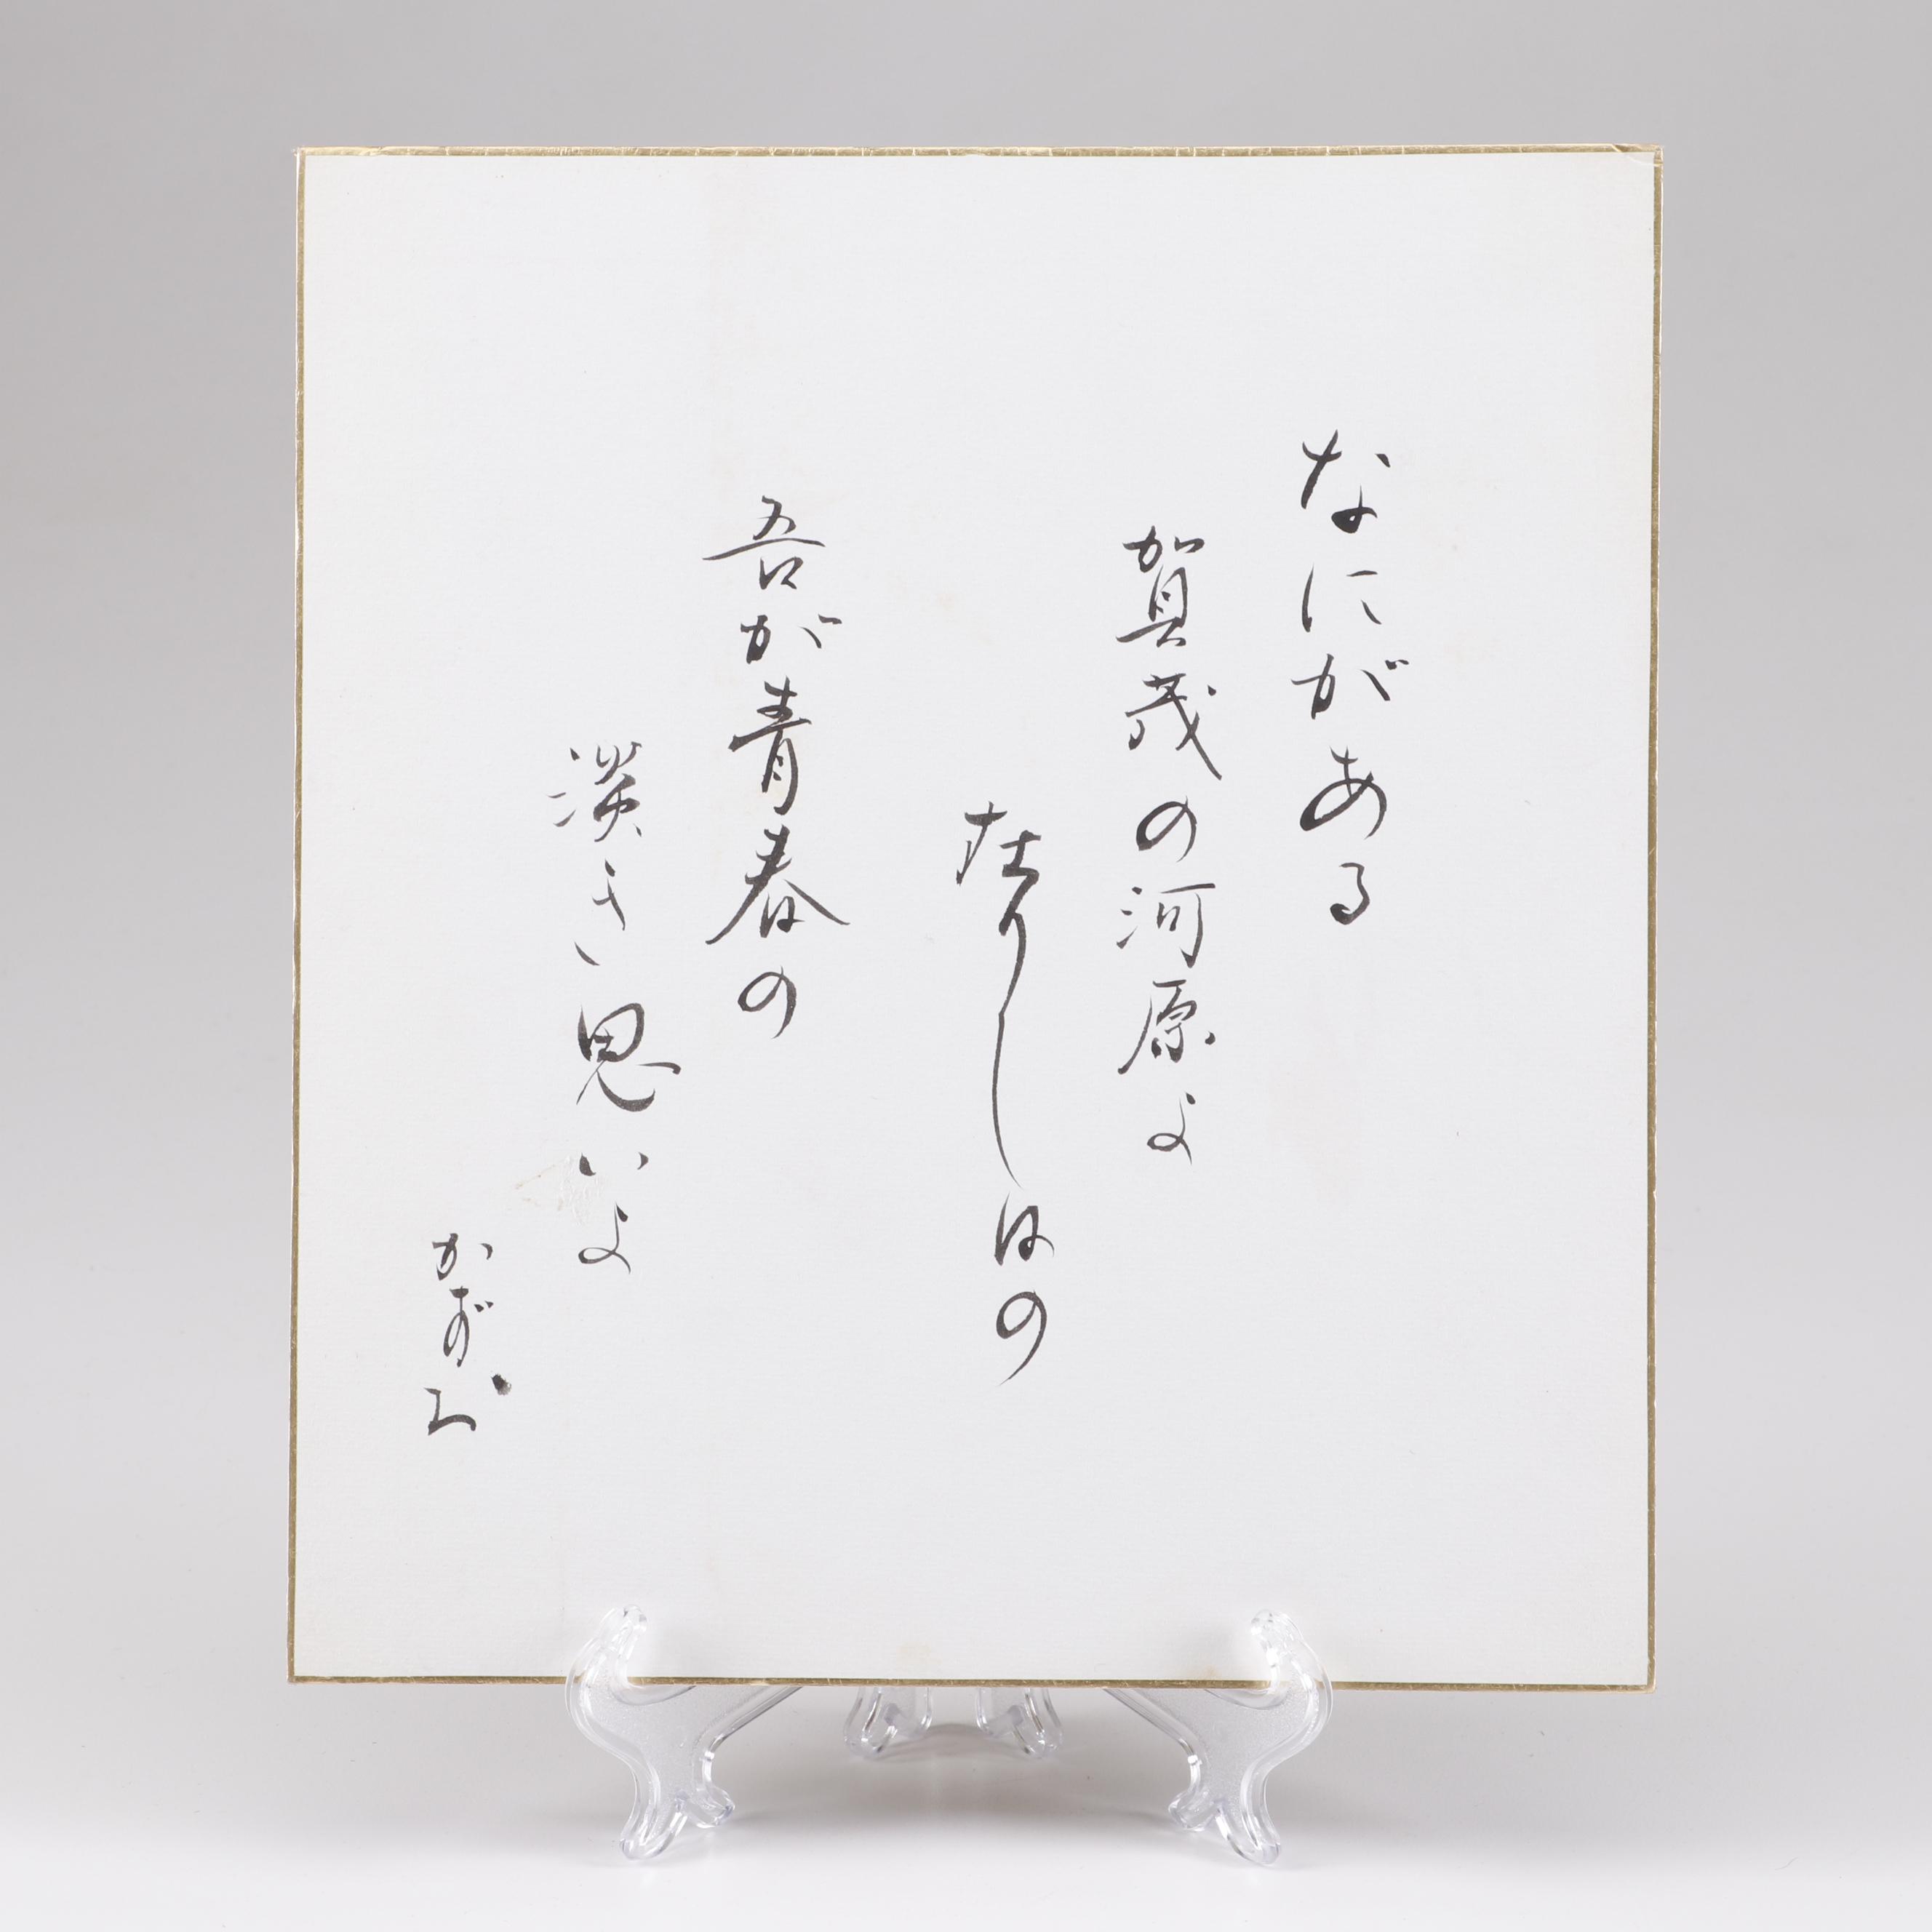 なにがある
賀茂の河原よ
在りし日の
吾が青春の
淡き思いよ
かずお